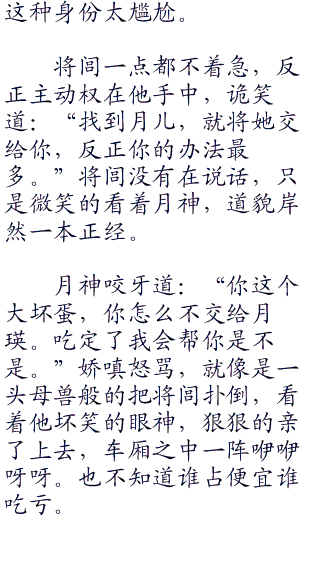 这种身份太尴尬。
将闾一点都不着急，反
正主动权在他手中，诡笑
道：“找到月儿，就将她交
给你，反正你的办法最
多。”将闾没有在说话，只
是微笑的看着月神，道貌岸
然一本正经。
月神咬牙道：“你这个
大坏蛋，你怎么不交给月
瑛。吃定了我会帮你是不
是。”娇嗔怒骂，就像是一
头母兽般的把将闾扑倒，看
着他坏笑的眼神，狠狠的亲
了上去，车厢之中一阵咿咿
呀呀。也不知道谁占便宜谁
吃亏。